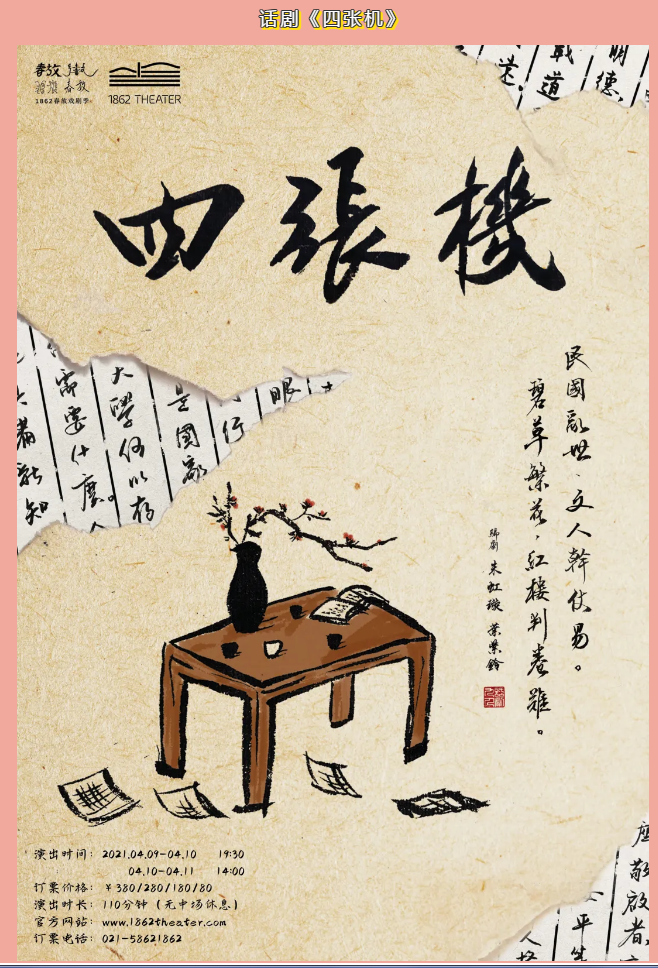 话剧《四张机》
1862春放戏剧季
1862 THEATER
四張機
民國亂世，文人幹仗易。
碧草繁花，紅樓判卷難。
編劇 朱虹璇 葉紫鈴
需要什麼。
大學何以存
是國家
眼
演出时间：2021.04.09-04.10 19:30
04.10-04.11 14:00
订票价格：￥380/280/180/80
演出时长：110分钟（无中场休息）
官方网站：www.1862theater.com
订票电话：021-58621862